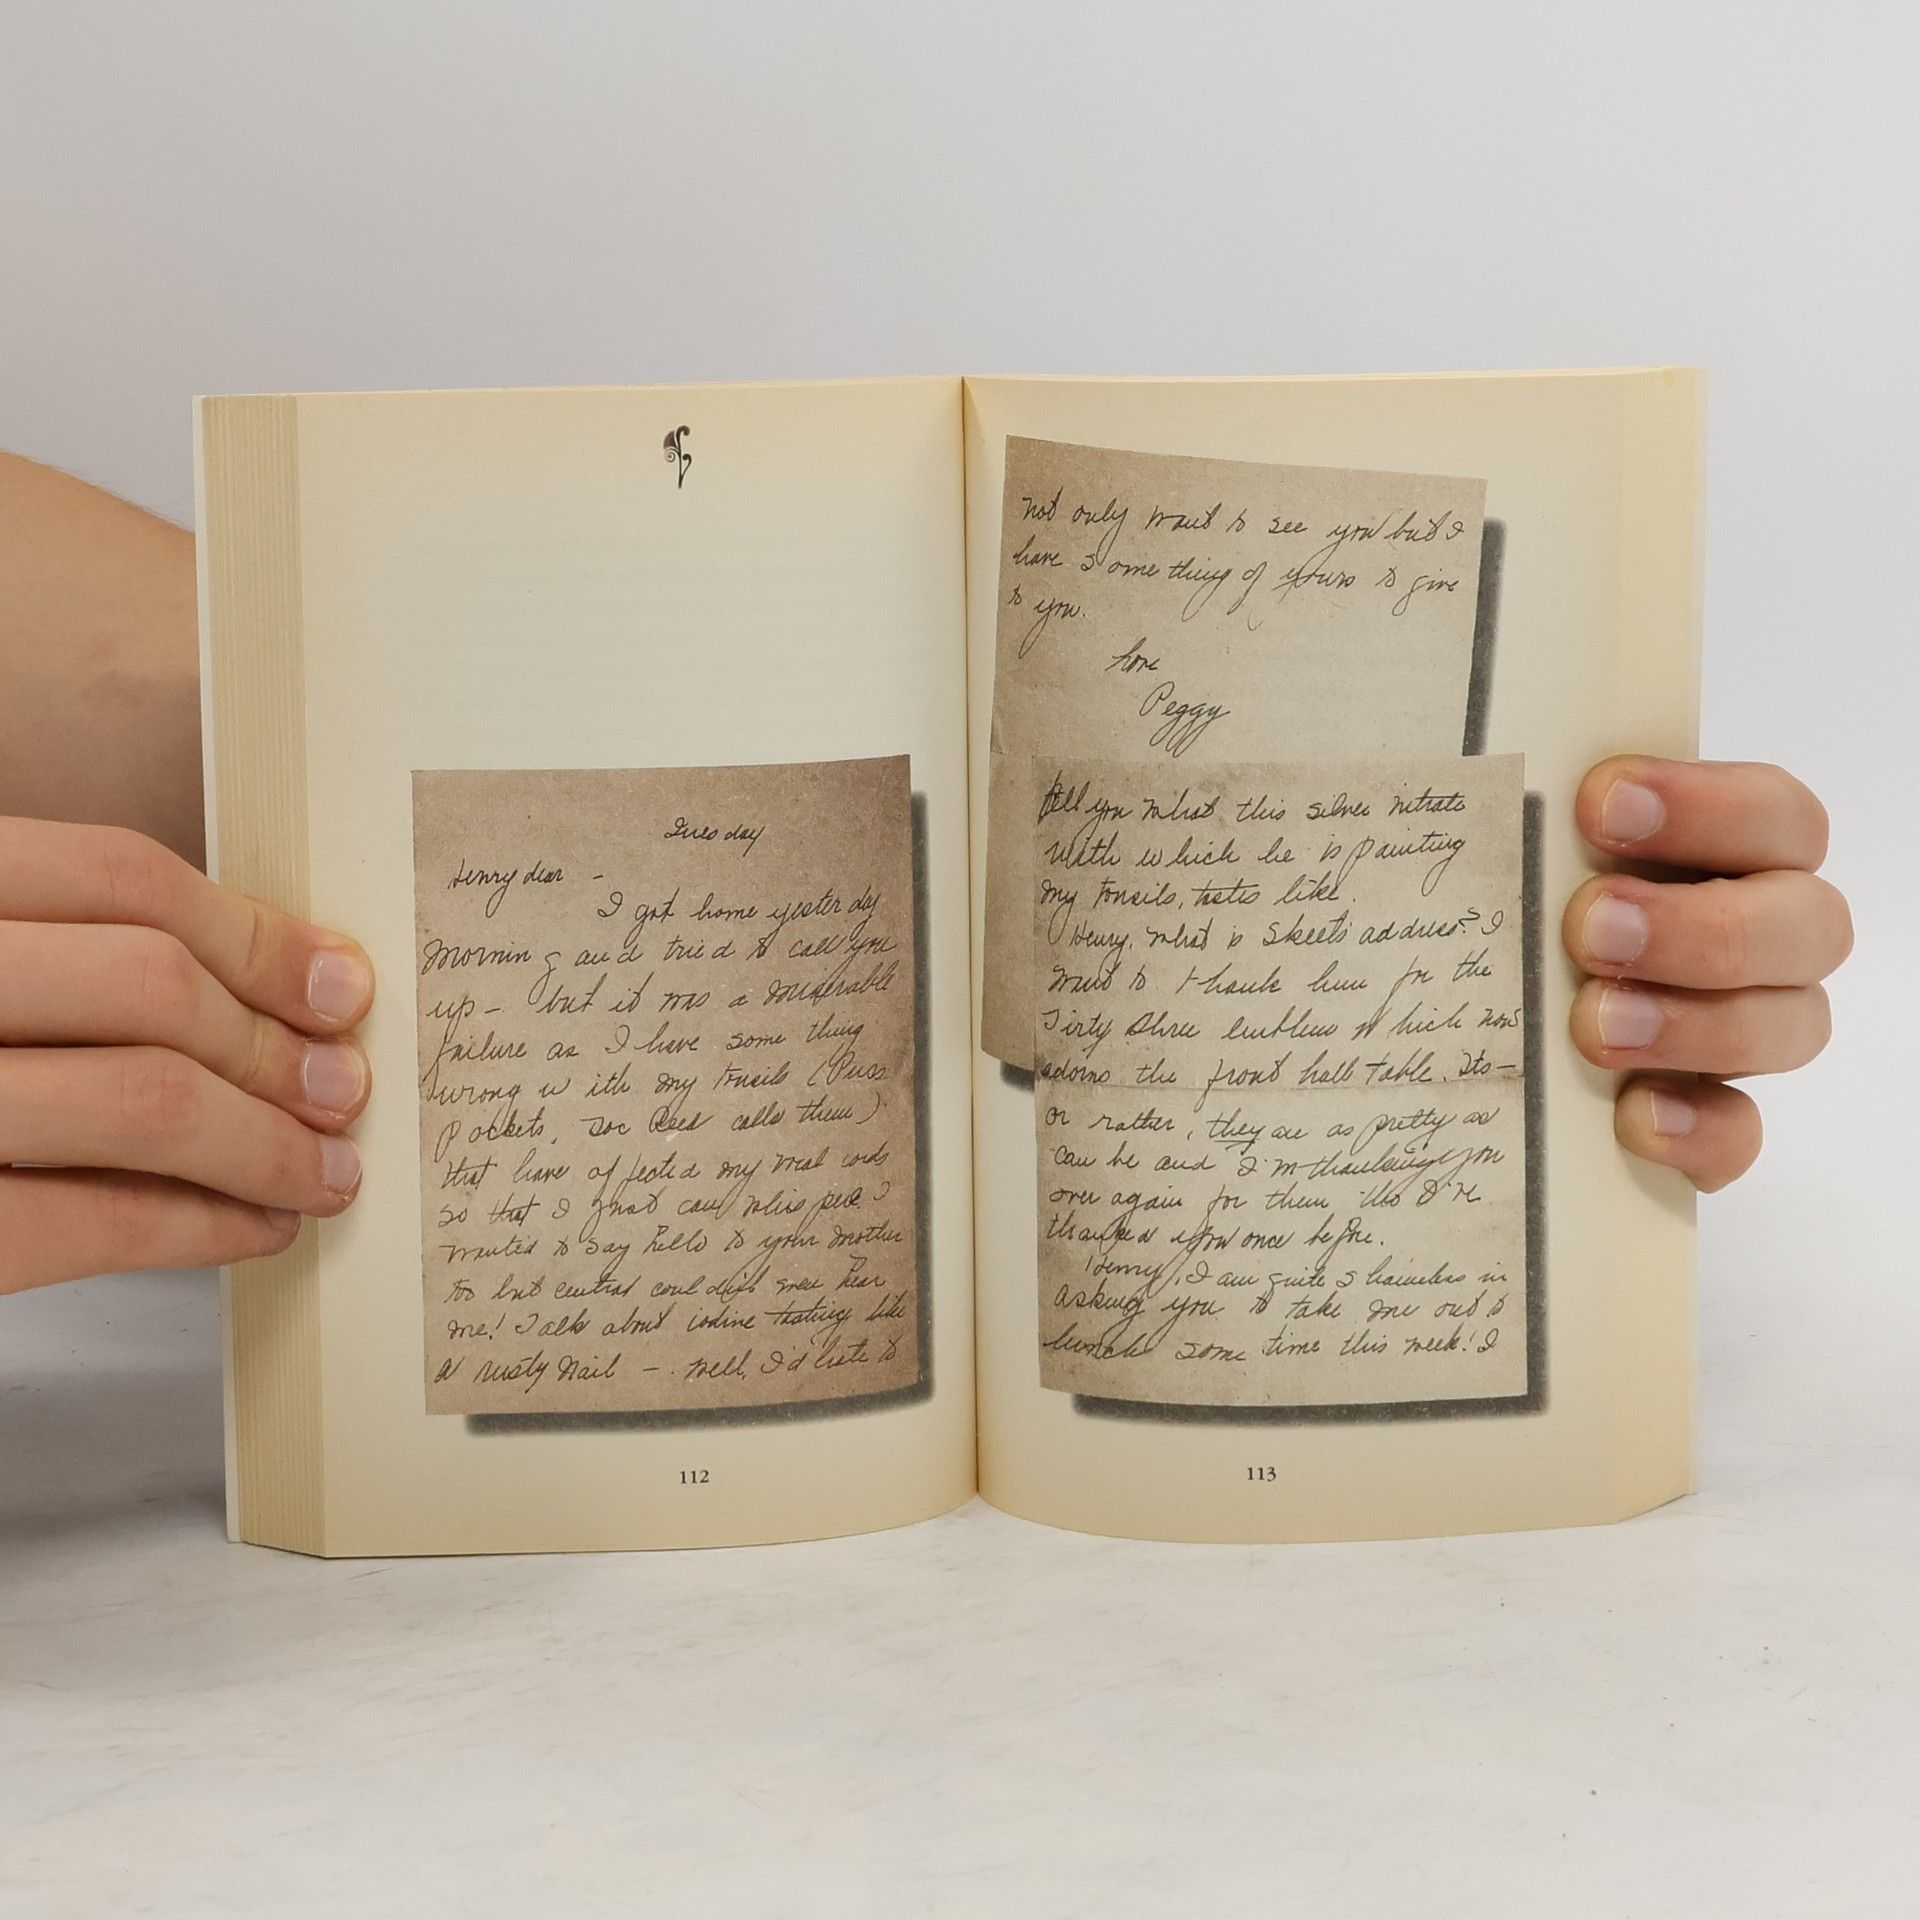 Tuesday
Henry dear -
I got home yesterday
morning and tried to call you
up - but it was a miserable
failure as I have something
wrong with my tonsils (Puss
Pockets, Doc Reed calls them)
that have affected my vocal cords
so that I just can whisper. I
wanted to say hello to your mother
too but central couldn't even hear
me! Talk about iodine tasting like
a rusty nail - well, I'd hate to
112
not only want to see you but I
have something of yours to give
to you.
Love
Peggy
tell you what this silver nitrate
with which he is painting
my tonsils, tastes like.
Henry, what is Skeets address? I
want to thank him for the
Dirty Shree emblem which now
adorns the front hall table. Its-
or rather, they are as pretty as
can be and I'm thanking you
over again for them tho I've
thanked you once before.
Henry, I am quite shameless in
asking you to take me out to
lunch some time this week! I
113